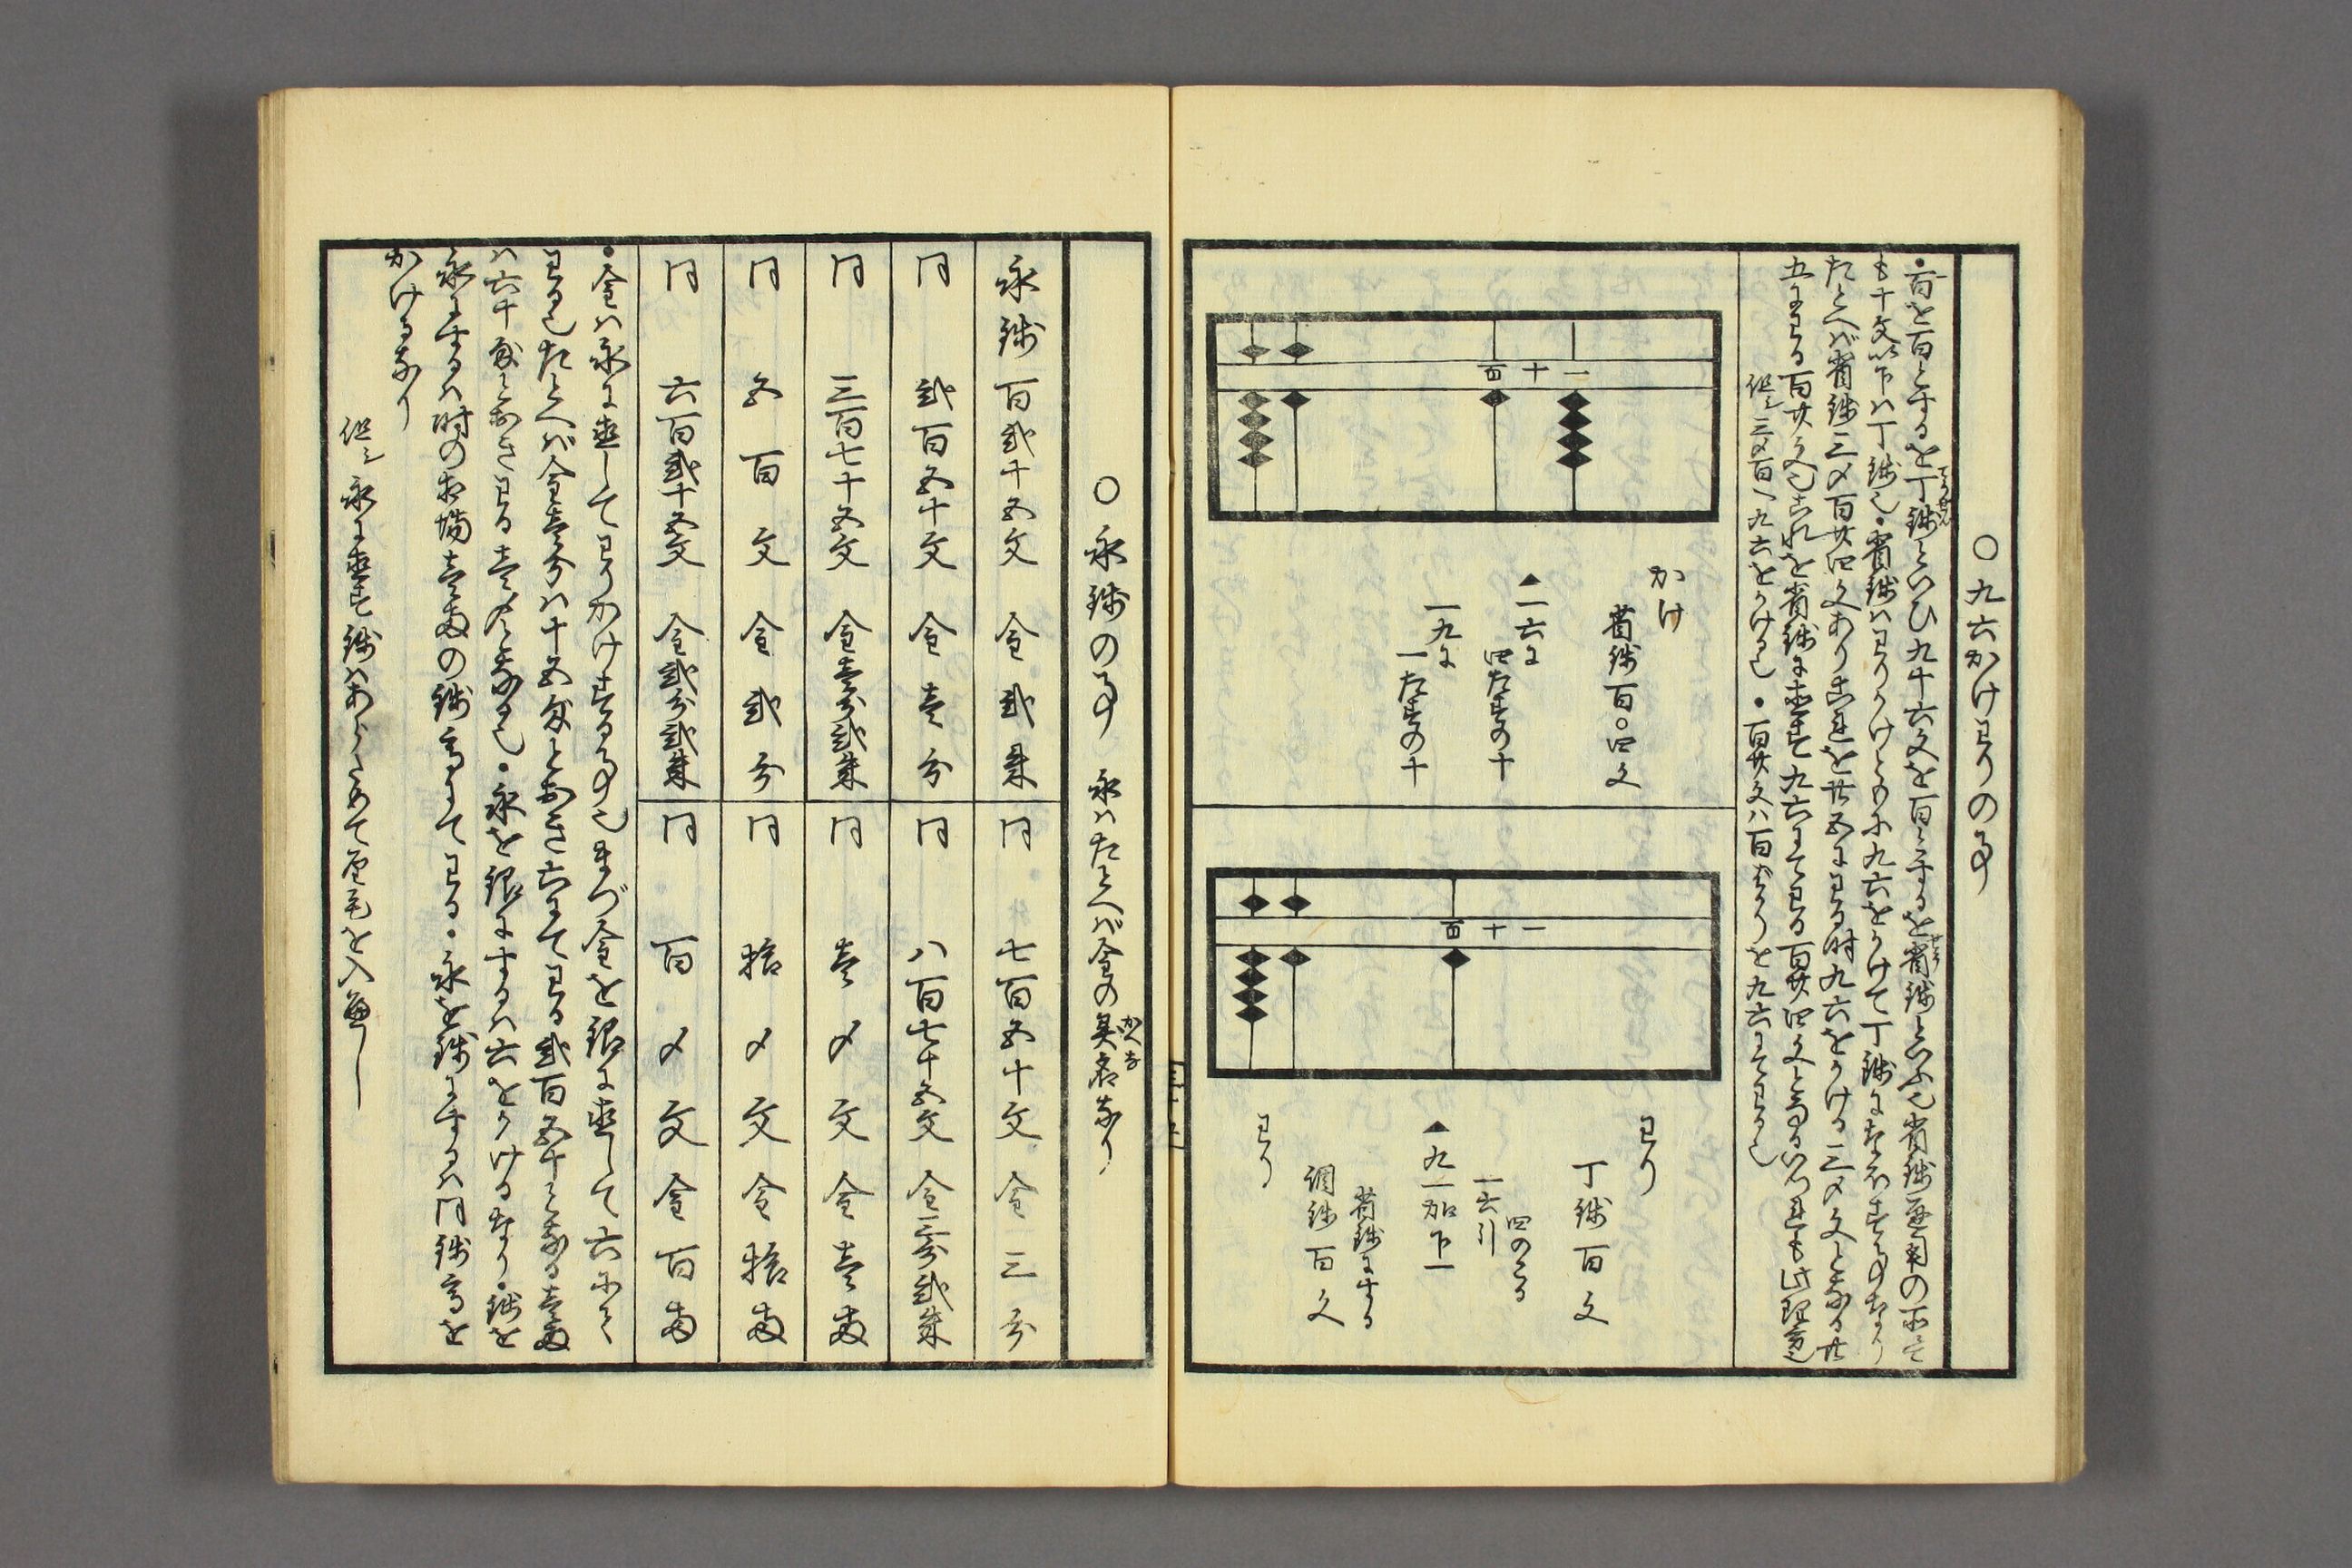 ○九六かけわりの事
・百を百とするを丁銭といひ九十六文を百とするを省銭といふ也省銭通用の所にて
も十文以下ハ丁銭也・省銭ハわりかけともに九六をかけて丁銭になほす事なり
たとへバ省銭三〆百廿四文あり是を廿五にわる時九六をかける三〆文となる廿
五にわる百廿文也これを省銭に直す九六にてわる百廿四文となるいづれも此理
但し三〆百へ九六をかける也・百廿文ハ百ばかりを九六にてわる也
一十百
かけ
省銭百〇四文
▲一六に
四たすの十
一九に
一たすの十
一十百
わり
丁銭百文
四のこる
一六引
▲九一加下一
省銭にする
調銭百文
わり
○永銭の事 永ハたとへバ金の異名なり
永銭 百弐十五文 金弐朱
同 弐百五十文 金壱分
同 三百七十五文 金壱分弐朱
同 五百文 金弐分
同 六百弐十五文 金弐分弐朱
同 七百五十文 金三分
同 八百七十五文 金三分弐朱
同 壱〆文 金壱両
同 拾〆文 金拾両
同 百〆文 金百両
・金ハ永に直してわりかけする事也まづ金を銀に直して六にて
わる也たとへバ金壱分ハ十五匁とおき六にてわる弐百五十となる壱両
ハ六十匁とおき六にてわる壱〆となる也・永を銀にするハ六をかけるなり・銭を
永にするハ時の相場壱両の銭高にてわる・永を銭にするハ同銭高を
かけるなり
但し永に直す銭ハあらためて厘毛を入べし